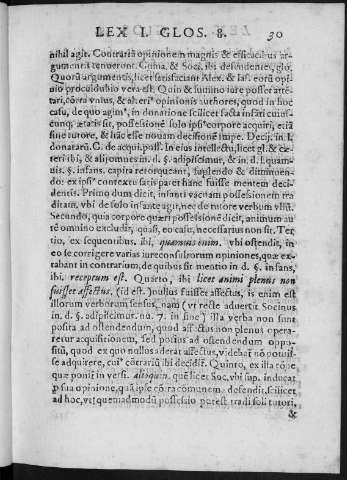 LEX GLOS. 8. 30
nihil agit. Contrariã opinionem magnis & efficacibus ar-
gumentis tenuerunt Cuma. & Soci. ibi defendentes, glo.
Quorũ argumentis, licet satisfaciant Alex. & Ias. eorũ opi-
nio proculdubio vera est. Quin & summo iure posset atte-
tari, cõtra vnius, & alteri⁹ opinionis authores, quod in hoc
casu, de quo agim⁹, in donatione scilicet facta infãti cuius-
cunq; ætatis sit, possessionẽ solo ipsi⁹ corpore acquiri, etiã
sine tutore, & hãc esse nouam decisionẽ impe. Decij. in l.
donatarũ. C. de acqui. poss. In eius intellectu, licet gl. & cæ-
teri ibi, & alij omnes in d. §. adipiscimur, & in d. l. quam-
uis. §. infans. capita retorqueant, supplendo & diminuen-
do: ex ipsi⁹ contextu satis patet hanc fuisse mentem deci-
dentis. Primo dum dicit, infanti vacuam possessionem tra-
ditam, vbi de solo infante agit, nec de tutore verbum vllũ.
Secundo, quia corpore quæri possessionẽ dicit, animum au
tẽ omnino excludit, quasi, eo casu, necessarius non sit. Ter
tio, ex sequentibus. ibi, quamuis enim. vbi ostendit, in
eo se corrigere varias iureconsultorum opiniones, quæ ex-
tabant in contrarium, de quibus sit mentio in d. §. infans,
ibi, receptum est. Quarto, ibi licet animi plenus non
fuisset affectus. (id est, nullus fuisset affectus, is enim est
illorum verborum sensus, nam (vt recte aduertit Socinus
in. d. §. adipiscimur. nu. 7. in fine) illa verba non sunt
posita ad ostendendum, quod affectus non plenus opera-
retur acquisitionem, sed potius ad ostendendum opposi-
tũ, quod ex quo nullos aderat affectus, videbat nõ potuis-
se adquirere, cui⁹ cõtrariũ ibi decidit. Quinto, ex illa rõne
quæ ponit in versi. alioquin. quẽ licet Soc. vbi sup. inducat
p sua opinione, quã ipse cõtra comunem defendit, scilicet
ad hoc, vt quemadmodũ possessio potest tradi soli tutori,
&